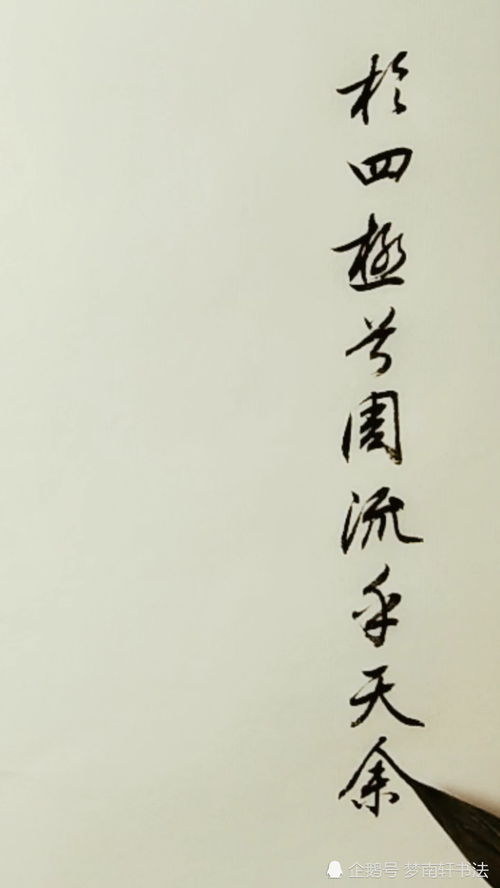 於四極兮周流乎天余
企鹅号 梦南轩书法